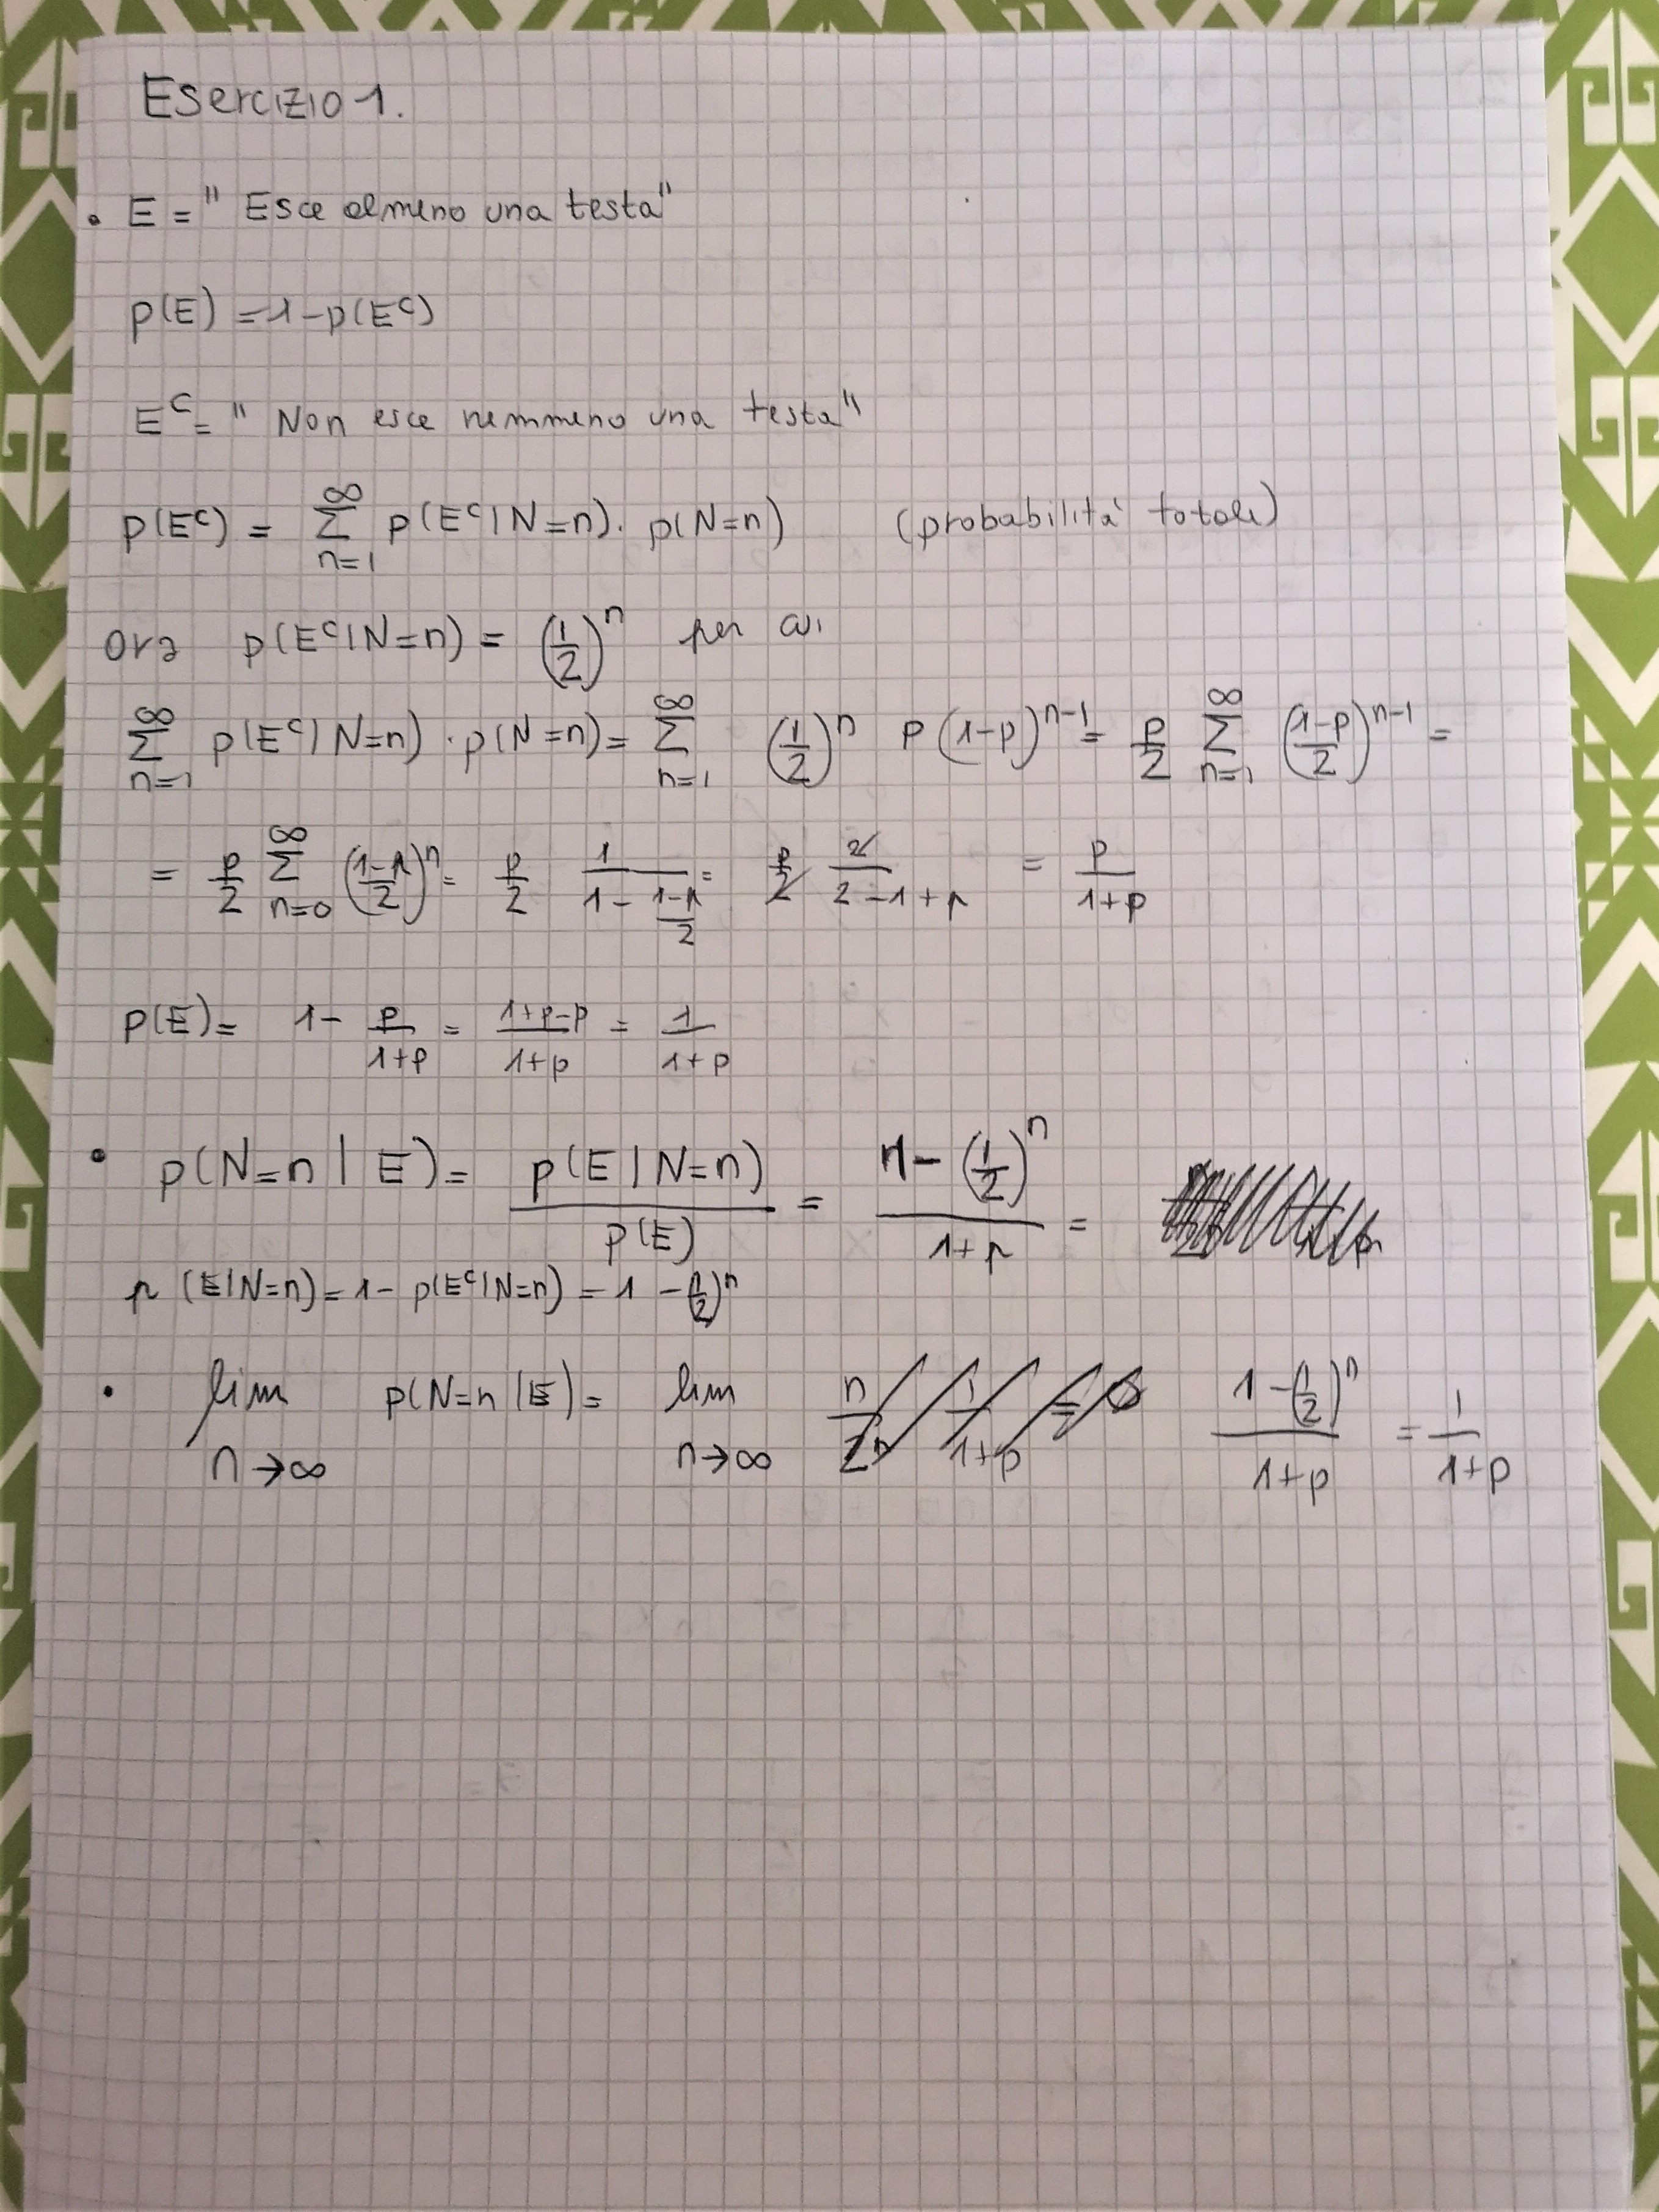 Esercizio 1.
• E = " Esce almeno una testa"
p(E) = 1 - p(E^C)
E^C = " Non esce nemmeno una testa"
p(E^C) = ∑_{n=1}^{∞} p(E^C | N=n) · p(N=n) (probabilità totale)
Ora p(E^C | N=n) = (1/2)^n per cui
∑_{n=1}^{∞} p(E^C | N=n) · p(N=n) = ∑_{n=1}^{∞} (1/2)^n p(1-p)^{n-1} = p/2 ∑_{n=1}^{∞} ((1-p)/2)^{n-1} =
= p/2 ∑_{n=0}^{∞} ((1-p)/2)^n = p/2 1/(1 - (1-p)/2) = p/2 2/(2-1+p) = p/(1+p)
p(E) = 1 - p/(1+p) = (1+p-p)/(1+p) = 1/(1+p)
• p(N=n | E) = p(E | N=n)/p(E) = (1 - (1/2)^n)/(1+p) =
p (E|N=n) = 1 - p(E^C|N=n) = 1 - (1/2)^n
• lim_{n→∞} p(N=n | E) = lim_{n→∞} n/2^n 1/(1+p) = 0 (1 - (1/2)^n)/(1+p) = 1/(1+p)